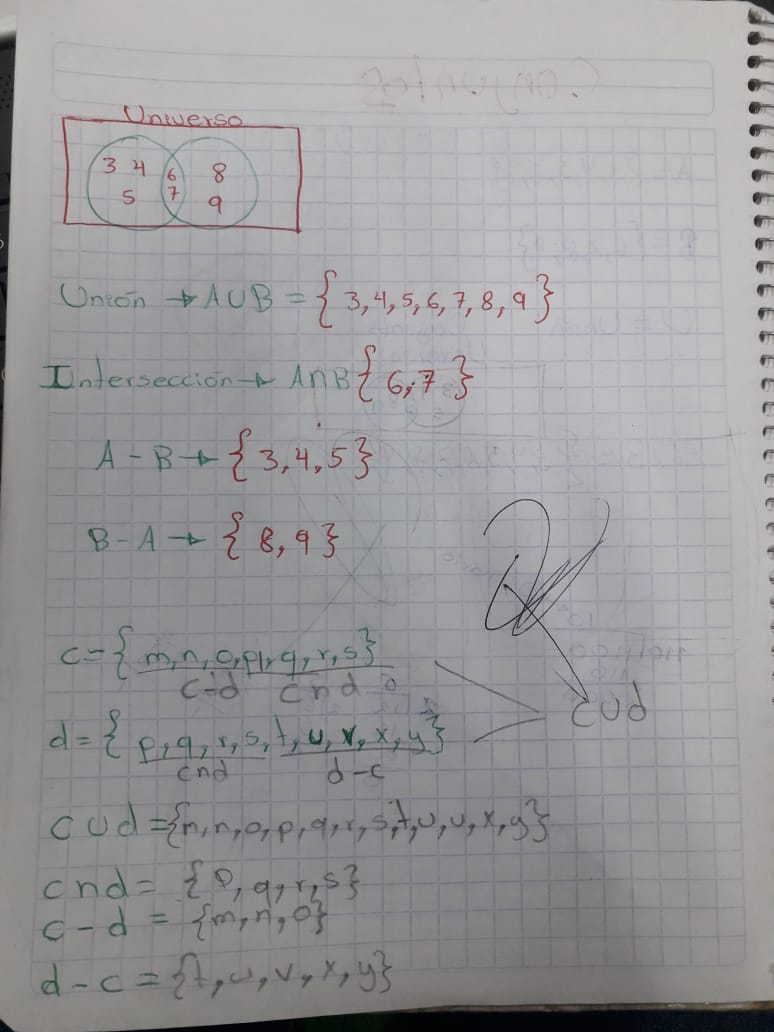 Universo
3 4 6 8
5 7 9
Unión → A∪B = { 3, 4, 5, 6, 7, 8, 9 }
Intersección → A∩B { 6, 7 }
A - B → { 3, 4, 5 }
B - A → { 8, 9 }
c = { m, n, o, p, q, r, s }
c-d c∩d
c∪d
d = { p, q, r, s, t, u, v, x, y }
c∩d d-c
c∪d = {m, n, o, p, q, r, s, t, u, v, x, y}
c∩d = {p, q, r, s}
c - d = {m, n, o}
d - c = {t, u, v, x, y}